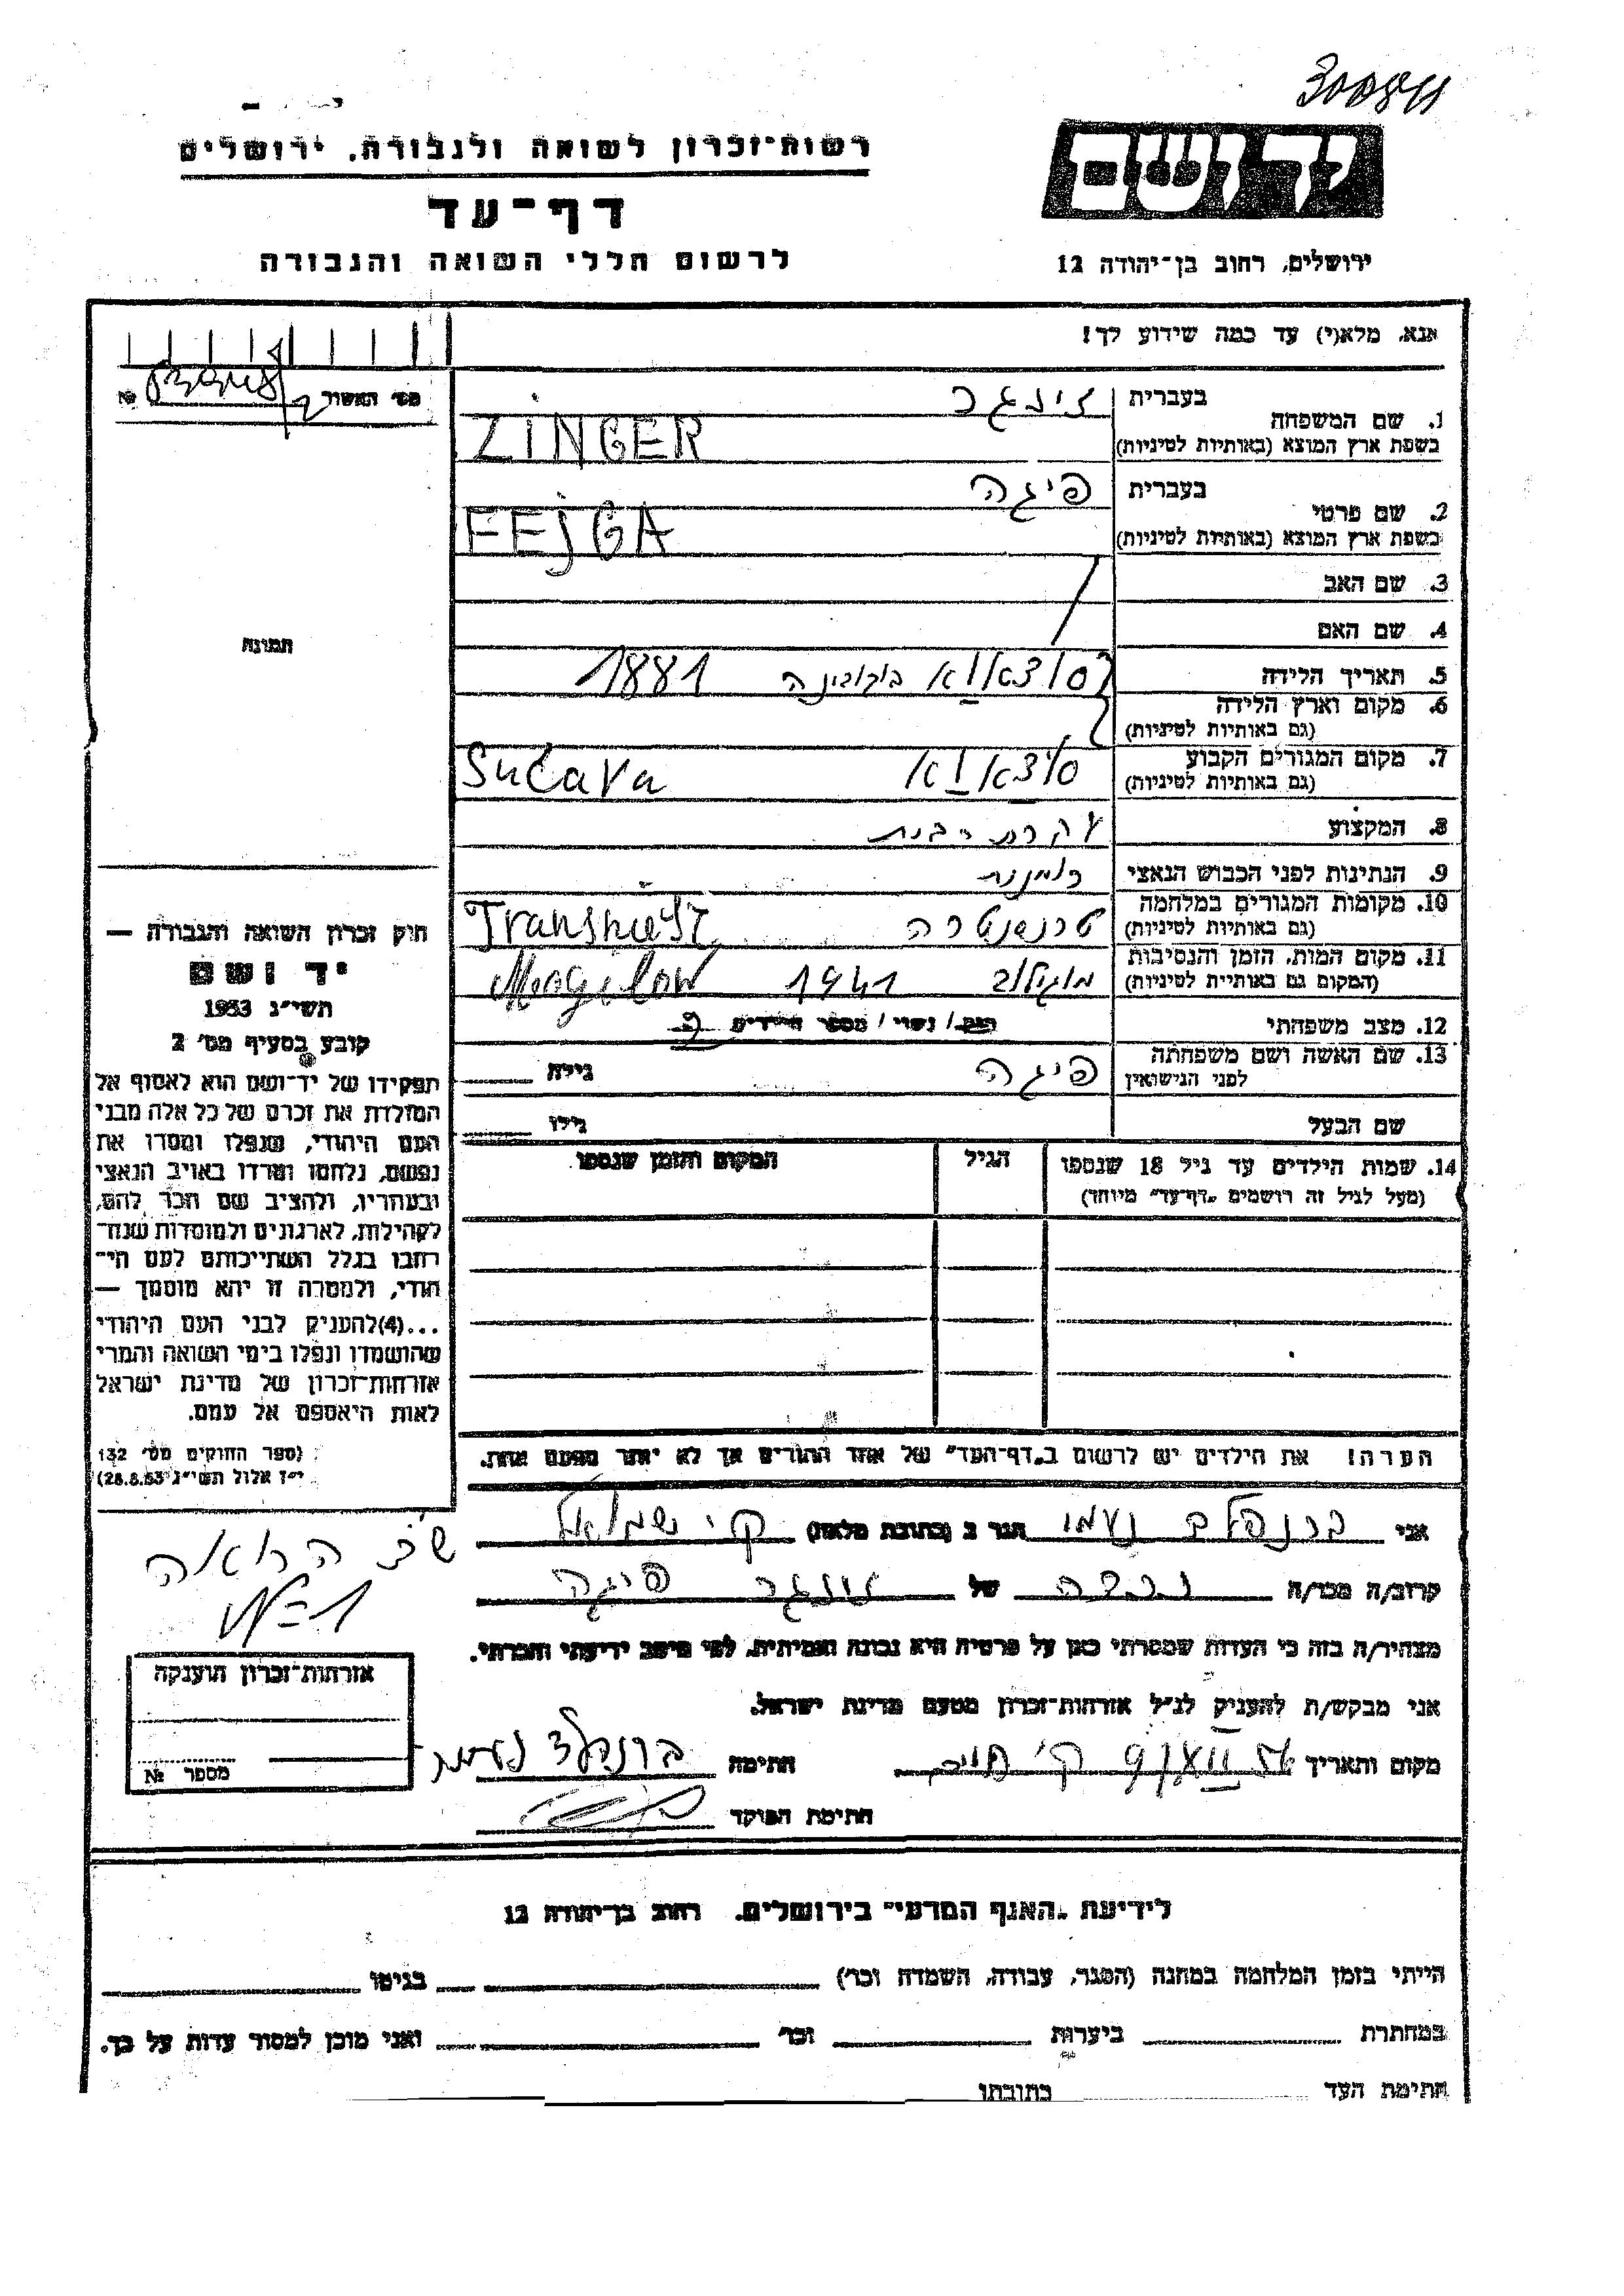 רשות־זכרון לשואה ולגבורה. ירושלים
דף־עד
לרשום חללי השואה והגבורה
יד ושם
ירושלים, רחוב בן־יהודה 12
אנא, מלא(י) עד כמה שידוע לך!
מס׳ האשור №
1. שם המשפחה בעברית זינגר
בשפת ארץ המוצא (באותיות לטיניות) ZINGER
2. שם פרטי בעברית פיגה
בשפת ארץ המוצא (באותיות לטיניות) FEJGA
3. שם האב
4. שם האם
5. תאריך הלידה סוצאווא בוקובינה 1881
6. מקום וארץ הלידה
(גם באותיות לטיניות)
7. מקום המגורים הקבוע סוצאווא Sučava
(גם באותיות לטיניות)
8. המקצוע עקרת הבית
9. הנתינות לפני הכבוש הנאצי
10. מקומות המגורים במלחמה
(גם באותיות לטיניות)
11. מקום המות, הזמן והנסיבות 1941
(המקום גם באותיות לטיניות)
12. מצב משפחתי רווק / נשוי / מספר הילדים
13. שם האשה ושם משפחתה פיגה גילה
לפני הנישואין
שם הבעל גילו
14. שמות הילדים עד גיל 18 שנספו הגיל המקום והזמן שנספו
(מעל לגיל זה רושמים „דף־עד״ מיוחד)
הערה! את הילדים יש לרשום ב„דף־העד״ של אחד ההורים אך לא יותר מפעם אחת.
תמונה
חוק זכרון השואה והגבורה —
יד ושם
תשי״ג 1953
קובע בסעיף מס׳ 2
תפקידו של יד־ושם הוא לאסוף אל
המולדת את זכרם של כל אלה מבני
העם היהודי, שנפלו ומסרו את
נפשם, נלחמו ומרדו באויב הנאצי
ובעוזריו, ולהציב שם וזכר להם,
לקהילות, לארגונים ולמוסדות שנח־
רבו בגלל השתייכותם לעם הי־
הודי, ולמטרה זו יהא מוסמך —
...(4)להעניק לבני העם היהודי
שהושמדו ונפלו בימי השואה והמרי
אזרחות־זכרון של מדינת ישראל
לאות היאספם אל עמם.
(ספר החוקים מס׳ 132
י״ז אלול תשי״ג 28.8.53)
אני נעמי הגר ב (כתובת מלאה)
קרוב/ה מכר/ה נכדה של זינגר פיגה
מצהיר/ה בזה כי העדות שמסרתי כאן על פרטיה היא נכונה ואמיתית, לפי מיטב ידיעתי והכרתי.
אני מבקש/ת להעניק לנ״ל אזרחות־זכרון מטעם מדינת ישראל.
מקום ותאריך חתימה
חתימת הפוקד
אזרחות־זכרון הוענקה
מספר №
לידיעת „האגף המדעי״ בירושלים. רחוב בן־יהודה 12
הייתי בזמן המלחמה במחנה (הסגר, עבודה, השמדה וכו׳) בגיטו
במחתרת ביערות וכו׳ ואני מוכן למסור עדות על כך.
חתימת העד כתובתו